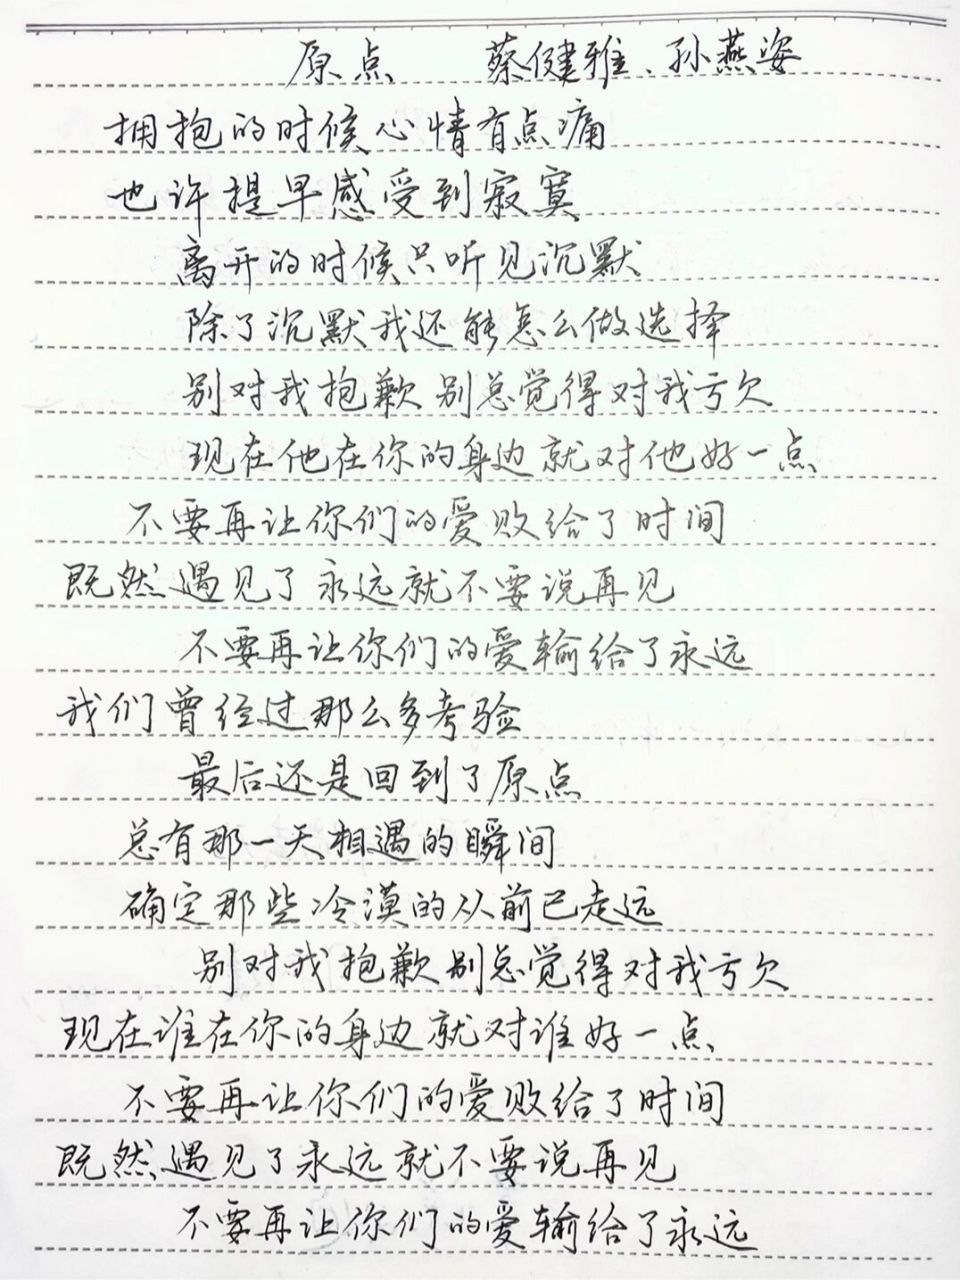 原点 蔡健雅、孙燕姿
拥抱的时候心情有点痛
也许提早感受到寂寞
离开的时候只听见沉默
除了沉默我还能怎么做选择
别对我抱歉别总觉得对我亏欠
现在他在你的身边就对他好一点
不要再让你们的爱败给了时间
既然遇见了永远就不要说再见
不要再让你们的爱输给了永远
我们曾经过那么多考验
最后还是回到了原点
总有那一天相遇的瞬间
确定那些冷漠的从前已走远
别对我抱歉别总觉得对我亏欠
现在谁在你的身边就对谁好一点
不要再让你们的爱败给了时间
既然遇见了永远就不要说再见
不要再让你们的爱输给了永远